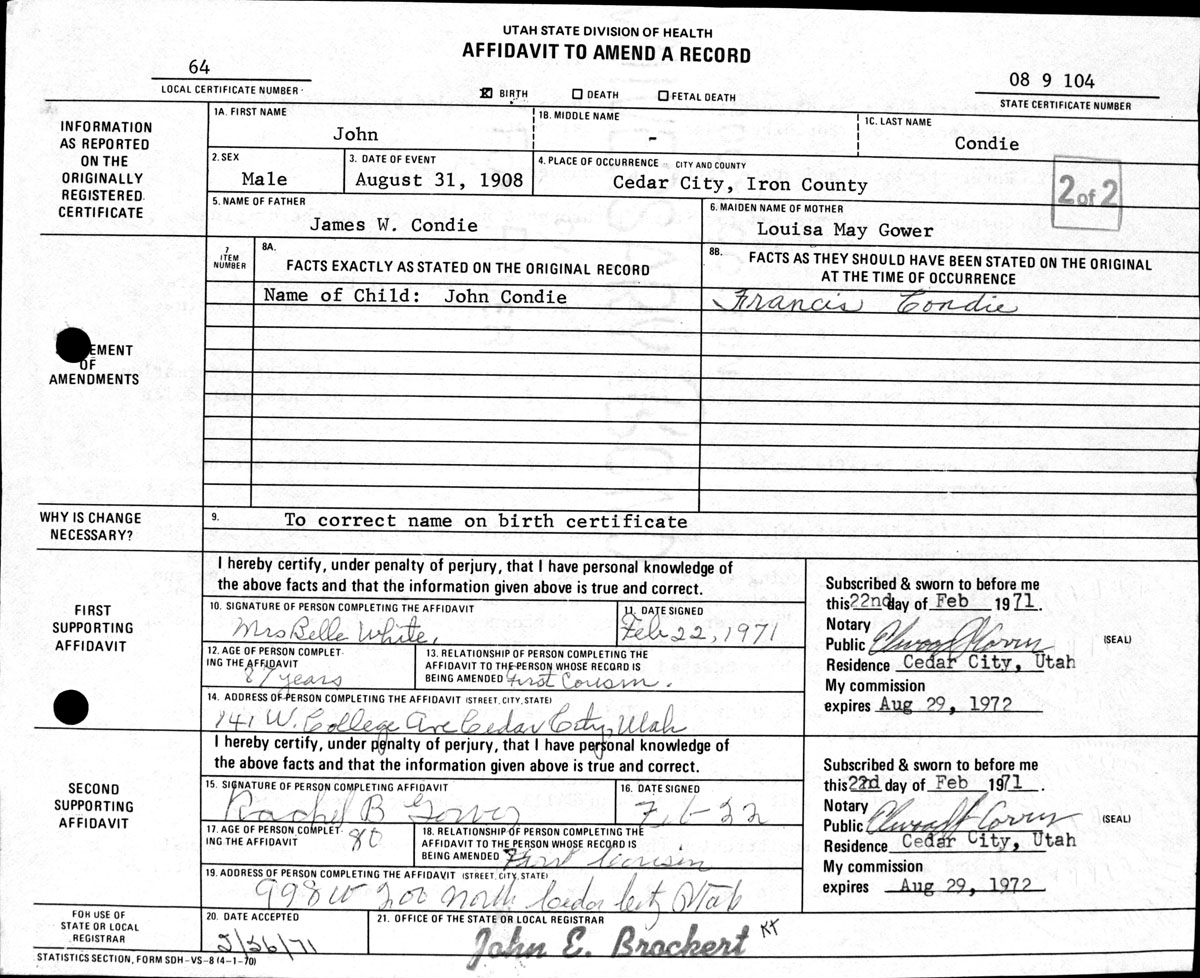 UTAH STATE DIVISION OF HEALTH
AFFIDAVIT TO AMEND A RECORD
64
LOCAL CERTIFICATE NUMBER
☒ BIRTH ☐ DEATH ☐ FETAL DEATH
08 9 104
STATE CERTIFICATE NUMBER
INFORMATION
AS REPORTED
ON THE
ORIGINALLY
REGISTERED
CERTIFICATE
1A. FIRST NAME
John
1B. MIDDLE NAME
-
1C. LAST NAME
Condie
2. SEX
Male
3. DATE OF EVENT
August 31, 1908
4. PLACE OF OCCURRENCE - CITY AND COUNTY
Cedar City, Iron County
2 of 2
5. NAME OF FATHER
James W. Condie
6. MAIDEN NAME OF MOTHER
Louisa May Gower
EMENT
OF
AMENDMENTS
7.
ITEM
NUMBER
8A.
FACTS EXACTLY AS STATED ON THE ORIGINAL RECORD
8B.
FACTS AS THEY SHOULD HAVE BEEN STATED ON THE ORIGINAL
AT THE TIME OF OCCURRENCE
Name of Child: John Condie
Francis Condie
WHY IS CHANGE
NECESSARY?
9.
To correct name on birth certificate
FIRST
SUPPORTING
AFFIDAVIT
I hereby certify, under penalty of perjury, that I have personal knowledge of
the above facts and that the information given above is true and correct.
10. SIGNATURE OF PERSON COMPLETING THE AFFIDAVIT
Mrs Belle White,
11. DATE SIGNED
Feb 22, 1971
12. AGE OF PERSON COMPLET-
ING THE AFFIDAVIT
87 years
13. RELATIONSHIP OF PERSON COMPLETING THE
AFFIDAVIT TO THE PERSON WHOSE RECORD IS
BEING AMENDED First Cousin.
14. ADDRESS OF PERSON COMPLETING THE AFFIDAVIT (STREET, CITY, STATE)
141 W. College Ave Cedar City, Utah
Subscribed & sworn to before me
this 22nd day of Feb 1971.
Notary
Public
(SEAL)
Residence Cedar City, Utah
My commission
expires Aug 29, 1972
SECOND
SUPPORTING
AFFIDAVIT
I hereby certify, under penalty of perjury, that I have personal knowledge of
the above facts and that the information given above is true and correct.
15. SIGNATURE OF PERSON COMPLETING AFFIDAVIT
Rachel B Gower
16. DATE SIGNED
Feb 22
17. AGE OF PERSON COMPLET-
ING THE AFFIDAVIT 80
18. RELATIONSHIP OF PERSON COMPLETING THE
AFFIDAVIT TO THE PERSON WHOSE RECORD IS
BEING AMENDED First Cousin
19. ADDRESS OF PERSON COMPLETING THE AFFIDAVIT (STREET, CITY, STATE)
998 W 200 North Cedar City Utah
Subscribed & sworn to before me
this 22d day of Feb 1971.
Notary
Public
(SEAL)
Residence Cedar City, Utah
My commission
expires Aug 29, 1972
FOR USE OF
STATE OR LOCAL
REGISTRAR
20. DATE ACCEPTED
2/26/71
21. OFFICE OF THE STATE OR LOCAL REGISTRAR
John E. Brockert
STATISTICS SECTION, FORM SDH-VS-8 (4-1-70)